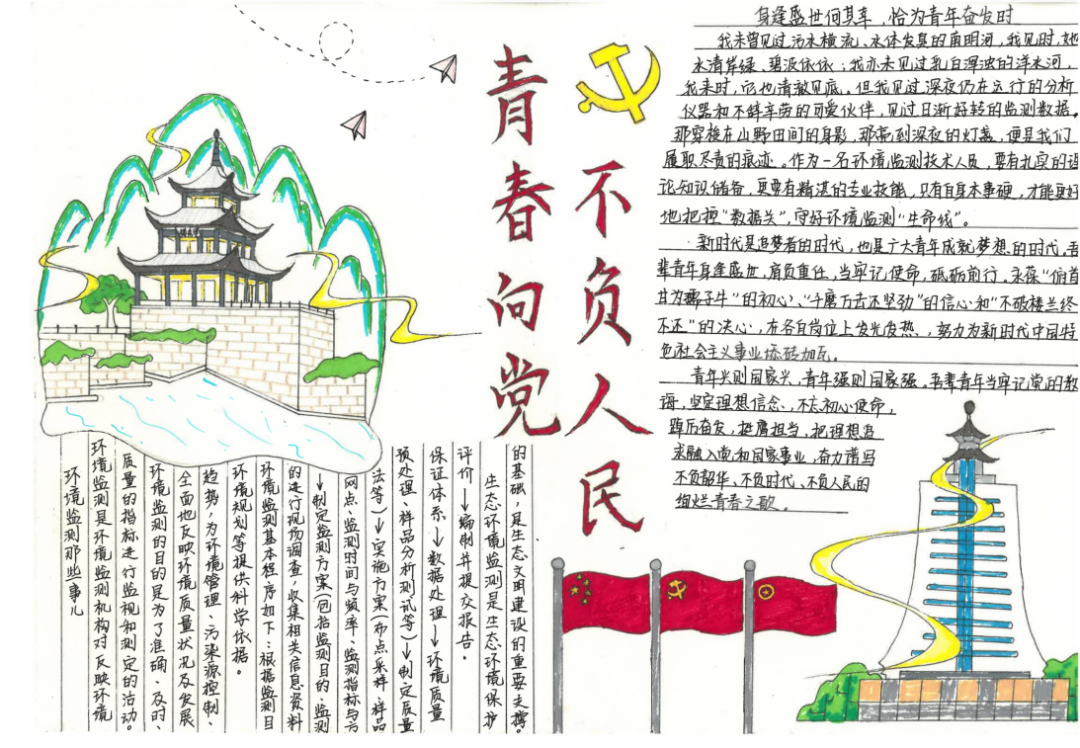 青春向党
不负人民
身逢盛世何其幸，恰为青年奋发时
我未曾见过污水横流、水体发臭的南明河，我见时，她
水清岸绿、碧波依依；我亦未见过乳白浑浊的洋水河，
我来时，它也清澈见底。但我见过深夜仍在运行的分析
仪器和不辞辛劳的可爱伙伴，见过日渐好转的监测数据。
那穿梭在山野田间的身影，那常到深夜的灯盏，便是我们
履职尽责的痕迹。作为一名环境监测技术人员，要有扎实的理
论知识储备，更要有精湛的专业技能，只有自身本事硬，才能更好
地把控“数据关”，守好环境监测“生命线”。
新时代是追梦者的时代，也是广大青年成就梦想的时代，吾
辈青年身逢盛世，肩负重任，当牢记使命，砥砺前行。永葆“俯首
甘为孺子牛”的初心、“千磨万击还坚劲”的信心和“不破楼兰终
不还”的决心，在各自岗位上发光发热，努力为新时代中国特
色社会主义事业添砖加瓦。
青年兴则国家兴，青年强则国家强，吾辈青年当牢记党的教
诲，坚定理想信念，不忘初心使命，
踔厉奋发，挺膺担当，把理想追
求融入党和国家事业，奋力谱写
不负韶华、不负时代、不负人民的
绚烂青春之歌。
环境监测那些事儿
环境监测是环境监测机构对反映环境
质量的指标进行监视和测定的活动。
环境监测的目的是为了准确、及时、
全面地反映环境质量状况及发展
趋势，为环境管理、污染源控制、
环境规划等提供科学依据。
环境监测基本程序如下：根据监测目
的进行现场调查，收集相关信息资料
↓制定监测方案（包括监测目的、监测
网点、监测时间与频率、监测指标与方
法等）↓实施方案（布点采样、样品
预处理、样品分析测试等）↓制定质量
保证体系↓数据处理↓环境质量
评价↓编制并提交报告。
生态环境监测是生态环境保护
的基础，是生态文明建设的重要支撑。